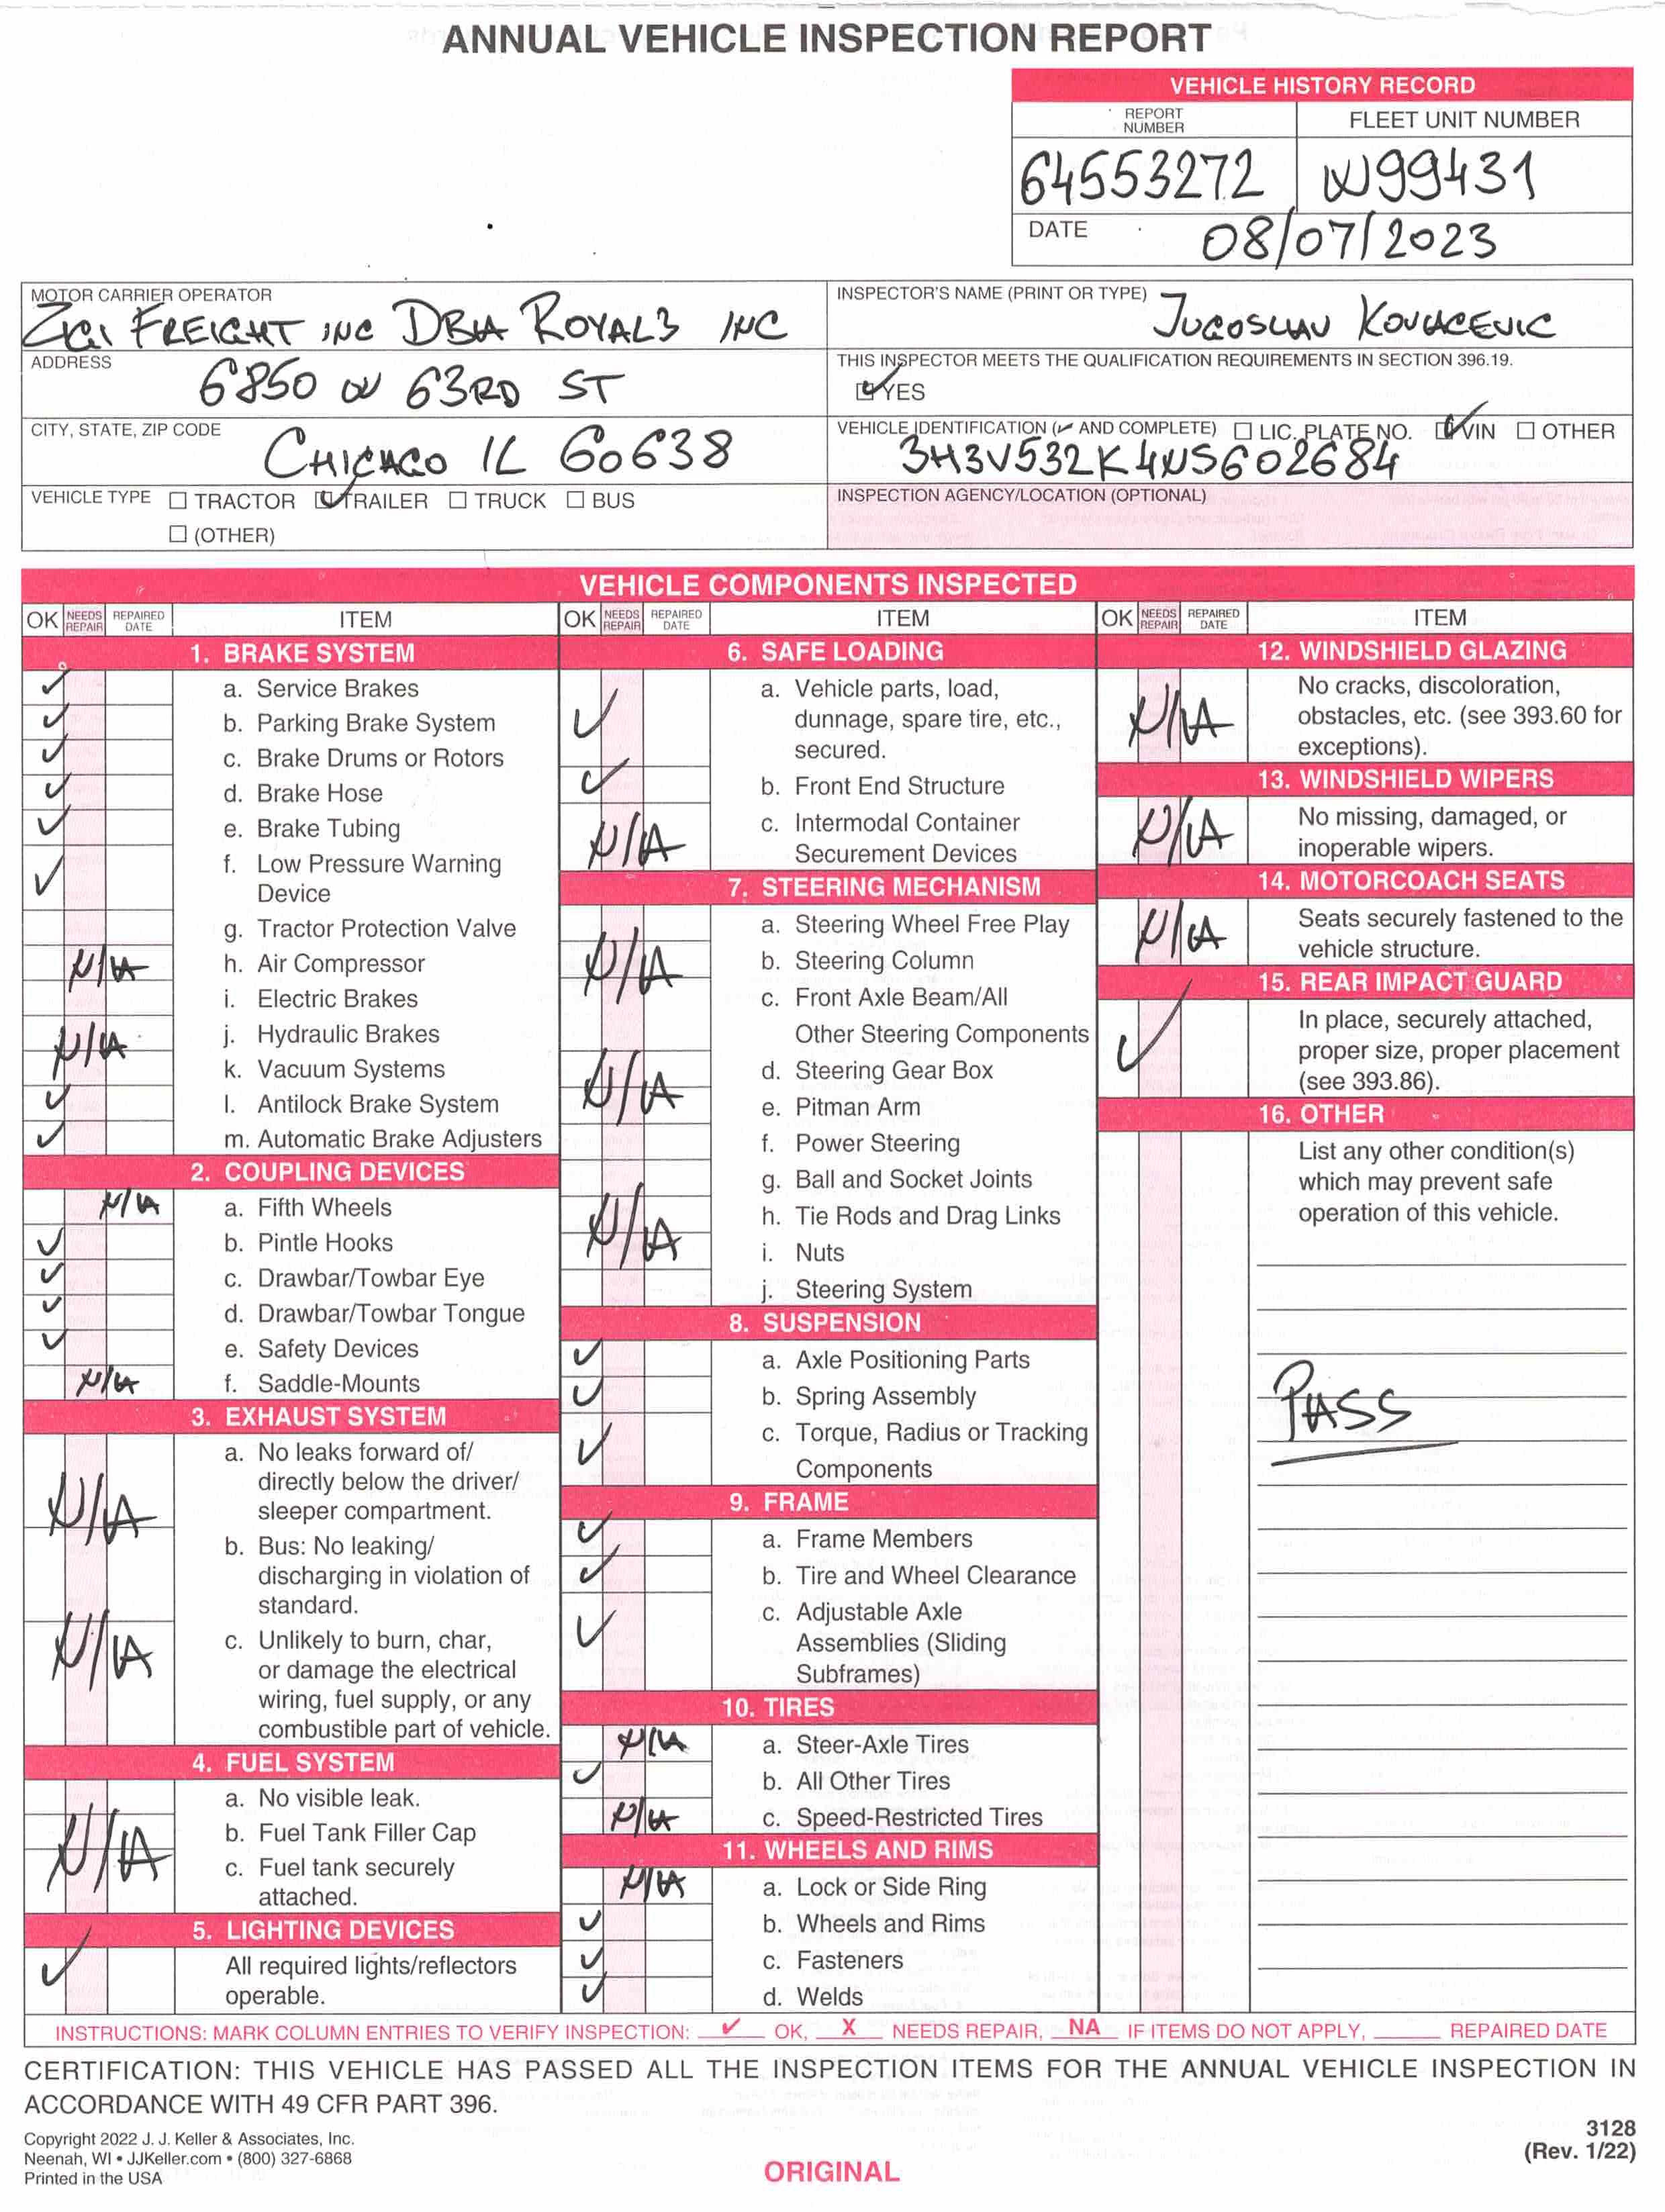 ANNUAL VEHICLE INSPECTION REPORT
VEHICLE HISTORY RECORD
REPORT NUMBER
FLEET UNIT NUMBER
64553272
W99431
DATE 08/07/2023
MOTOR CARRIER OPERATOR
ZIGI FREIGHT INC DBA ROYAL3 INC
INSPECTOR'S NAME (PRINT OR TYPE)
JUGOSLAV KOVACEVIC
ADDRESS
6850 W 63RD ST
THIS INSPECTOR MEETS THE QUALIFICATION REQUIREMENTS IN SECTION 396.19.
✓ YES
CITY, STATE, ZIP CODE
CHICAGO IL 60638
VEHICLE IDENTIFICATION (✓ AND COMPLETE) ☐ LIC. PLATE NO. ✓ VIN ☐ OTHER
3H3V532K4NS602684
VEHICLE TYPE ☐ TRACTOR ✓ TRAILER ☐ TRUCK ☐ BUS
☐ (OTHER)
INSPECTION AGENCY/LOCATION (OPTIONAL)
VEHICLE COMPONENTS INSPECTED
OK NEEDS REPAIR REPAIRED DATE ITEM
1. BRAKE SYSTEM
✓ a. Service Brakes
✓ b. Parking Brake System
✓ c. Brake Drums or Rotors
✓ d. Brake Hose
✓ e. Brake Tubing
✓ f. Low Pressure Warning
Device
g. Tractor Protection Valve
N/A h. Air Compressor
i. Electric Brakes
N/A j. Hydraulic Brakes
k. Vacuum Systems
✓ l. Antilock Brake System
✓ m. Automatic Brake Adjusters
2. COUPLING DEVICES
N/A a. Fifth Wheels
✓ b. Pintle Hooks
✓ c. Drawbar/Towbar Eye
✓ d. Drawbar/Towbar Tongue
✓ e. Safety Devices
N/A f. Saddle-Mounts
3. EXHAUST SYSTEM
a. No leaks forward of/
directly below the driver/
N/A sleeper compartment.
b. Bus: No leaking/
discharging in violation of
standard.
N/A c. Unlikely to burn, char,
or damage the electrical
wiring, fuel supply, or any
combustible part of vehicle.
4. FUEL SYSTEM
a. No visible leak.
N/A b. Fuel Tank Filler Cap
c. Fuel tank securely
attached.
5. LIGHTING DEVICES
✓ All required lights/reflectors
operable.
OK NEEDS REPAIR REPAIRED DATE ITEM
6. SAFE LOADING
✓ a. Vehicle parts, load,
dunnage, spare tire, etc.,
secured.
✓ b. Front End Structure
N/A c. Intermodal Container
Securement Devices
7. STEERING MECHANISM
a. Steering Wheel Free Play
N/A b. Steering Column
c. Front Axle Beam/All
Other Steering Components
N/A d. Steering Gear Box
e. Pitman Arm
f. Power Steering
g. Ball and Socket Joints
N/A h. Tie Rods and Drag Links
i. Nuts
j. Steering System
8. SUSPENSION
✓ a. Axle Positioning Parts
✓ b. Spring Assembly
✓ c. Torque, Radius or Tracking
Components
9. FRAME
✓ a. Frame Members
✓ b. Tire and Wheel Clearance
✓ c. Adjustable Axle
Assemblies (Sliding
Subframes)
10. TIRES
N/A a. Steer-Axle Tires
✓ b. All Other Tires
N/A c. Speed-Restricted Tires
11. WHEELS AND RIMS
N/A a. Lock or Side Ring
✓ b. Wheels and Rims
✓ c. Fasteners
✓ d. Welds
OK NEEDS REPAIR REPAIRED DATE ITEM
12. WINDSHIELD GLAZING
No cracks, discoloration,
N/A obstacles, etc. (see 393.60 for
exceptions).
13. WINDSHIELD WIPERS
N/A No missing, damaged, or
inoperable wipers.
14. MOTORCOACH SEATS
N/A Seats securely fastened to the
vehicle structure.
15. REAR IMPACT GUARD
In place, securely attached,
✓ proper size, proper placement
(see 393.86).
16. OTHER
List any other condition(s)
which may prevent safe
operation of this vehicle.
PASS
INSTRUCTIONS: MARK COLUMN ENTRIES TO VERIFY INSPECTION: ✓ OK, X NEEDS REPAIR, NA IF ITEMS DO NOT APPLY, ____ REPAIRED DATE
CERTIFICATION: THIS VEHICLE HAS PASSED ALL THE INSPECTION ITEMS FOR THE ANNUAL VEHICLE INSPECTION IN
ACCORDANCE WITH 49 CFR PART 396.
Copyright 2022 J. J. Keller & Associates, Inc.
Neenah, WI • JJKeller.com • (800) 327-6868
Printed in the USA
ORIGINAL
3128
(Rev. 1/22)